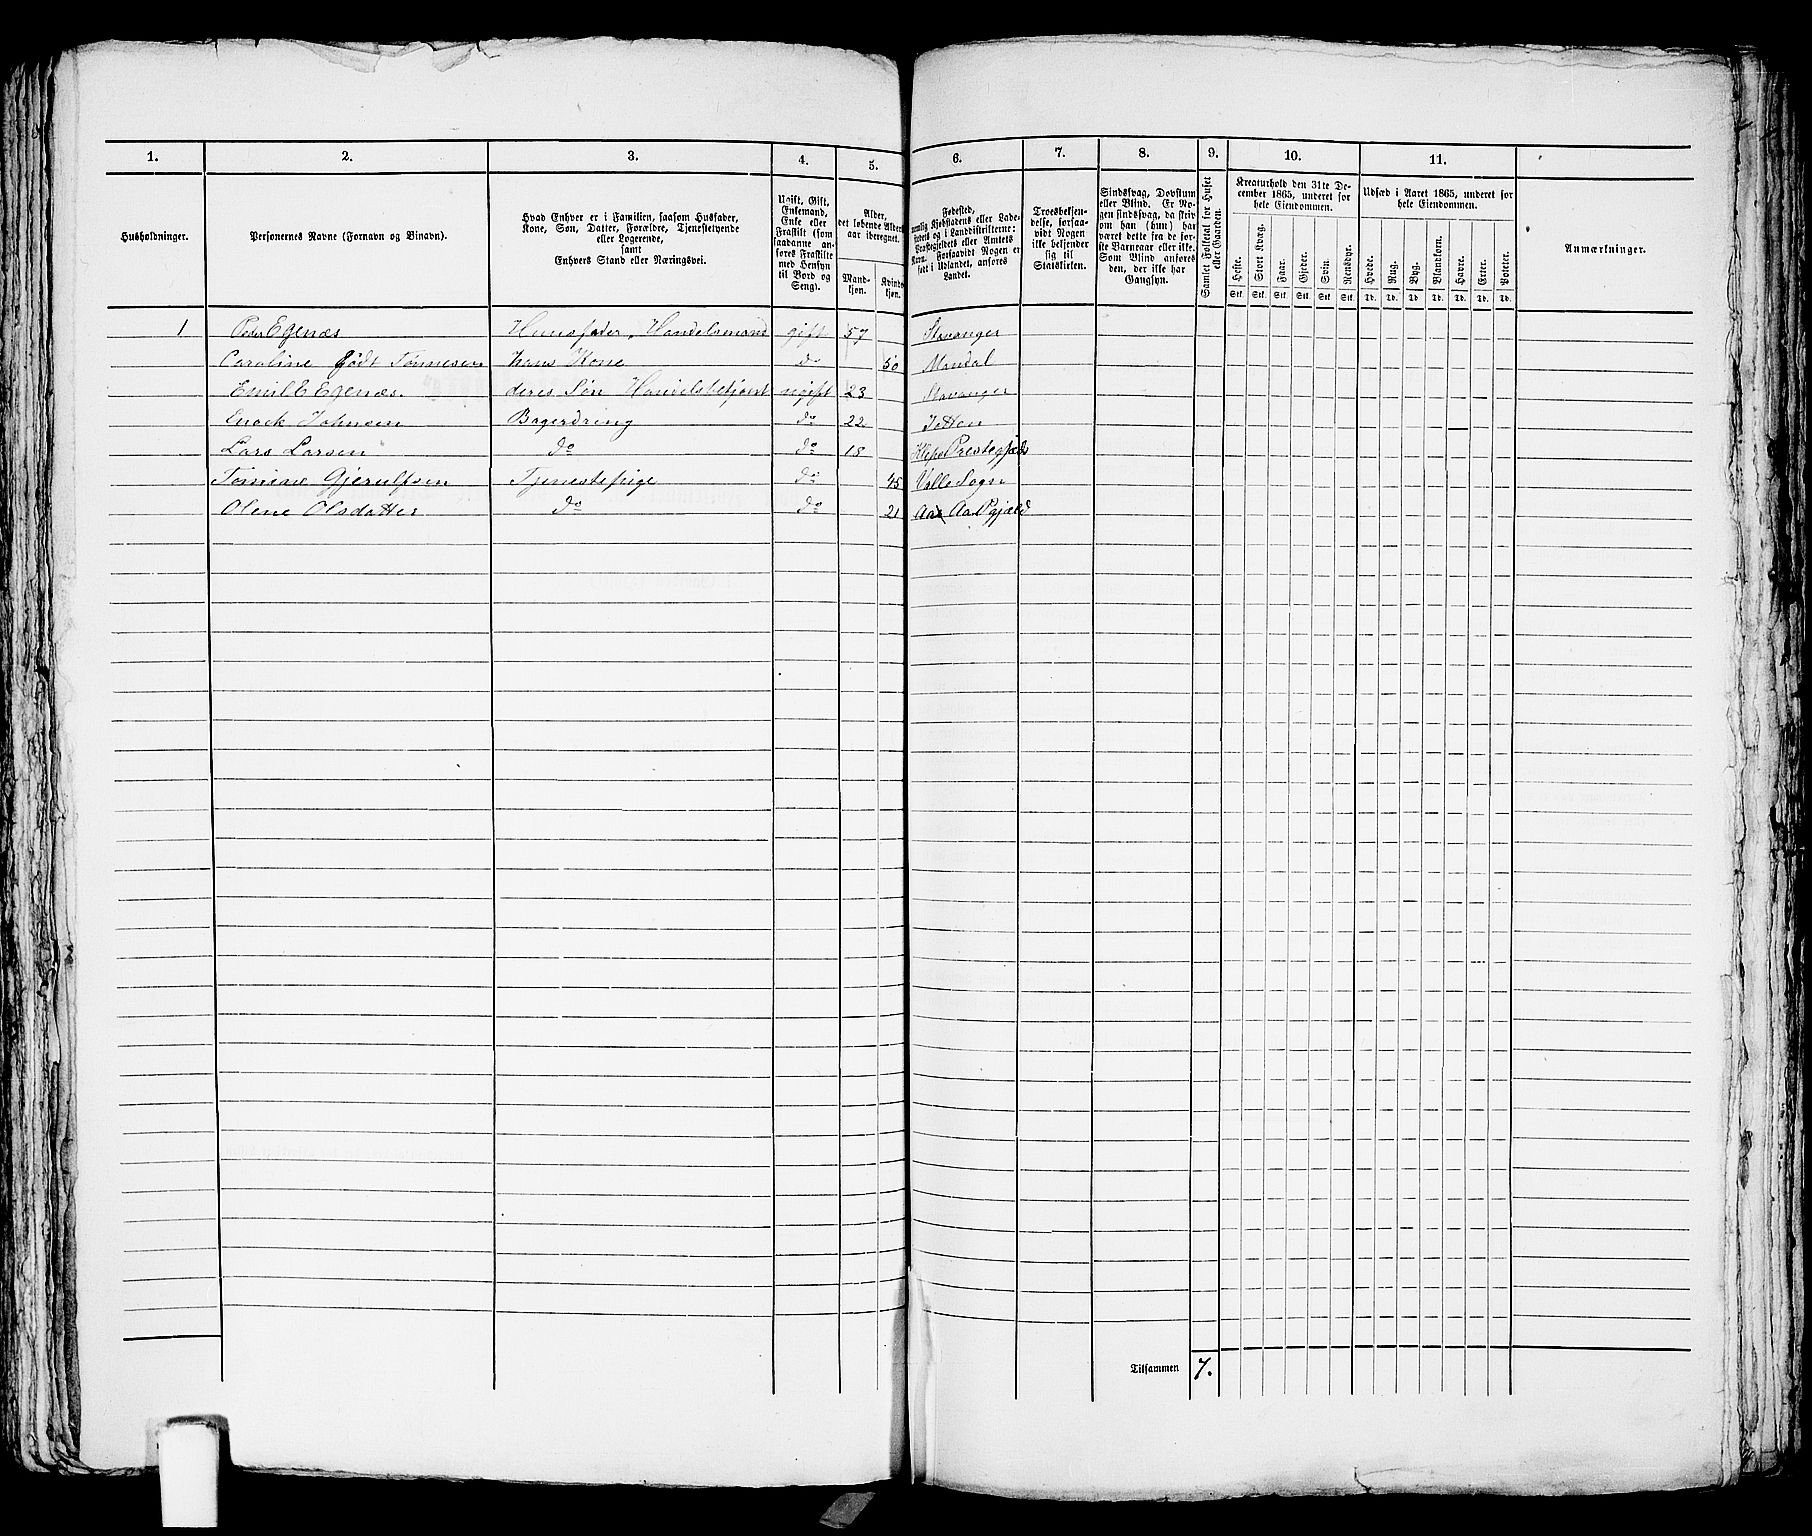 1. 2. 3. 4. 5. 6. 7. 8. 9. 10. 11.
Husholdninger.
Personernes Navne (Fornavn og Binavn).
Hvad Enhver er i Familien, saasom Husfader,
Kone, Søn, Datter, Forældre, Tjenestetyende
eller Logerende,
samt
Enhvers Stand eller Næringsvei.
Ugift, Gift,
Enkemand,
Enke eller
Fraskilt (som
saadanne an-
føres Fraskilte
med Hensyn
til Bord og
Seng).
Alder,
det løbende Alders-
aar iberegnet.
Mand-
kjøn.
Kvinde-
kjøn.
Fødested,
nemlig Kjøbstadens eller Lade-
stedets eller i Landdistrikterne:
Præstegjeldets eller Amtets
Navn. Forsaavidt Nogen er
født i Udlandet, anføres
Landet.
Troesbekjen-
delse, forsaa-
vidt Nogen
ikke bekjender
sig til
Statskirken.
Sindssvag, Døvstum
eller Blind. Er No-
gen sindssvag, da skriv
om han (hun) har
været dette fra de før-
ste Barneaar eller ikke.
Som Blind anføres
den, der ikke har
Gangsyn.
Samlet Folketal for Huset
eller Gaarden.
Kreaturhold den 31te De-
cember 1865, underet for
hele Eiendommen.
Heste.
Stort Kvæg.
Faar.
Gjeder.
Svin.
Rensdyr.
Stk. Stk. Stk. Stk. Stk. Stk.
Udsæd i Aaret 1865, underet for
hele Eiendommen.
Hvede.
Rug.
Byg.
Blandkorn.
Havre.
Erter.
Poteter.
Td. Td. Td. Td. Td. Td. Td.
Anmærkninger.
1 Peder Egenæs Huusfader, Handelsmand gift 57 Stavanger
Caroline født Tønnesen hans Kone do 50 Mandal
Emil E Egenæs. deres Søn Handelsbetjent ugift 23 Stavanger
Enock Johnsen Bagerdring do 22 Totten
Lars Larsen do do 18 Klep Prestegjeld
Tomine Gjerulfsen Tjenestepige do 45 Valle Sogn
Olene Olsdatter do do 21 Aa Pgjæld
Tilsammen 7.